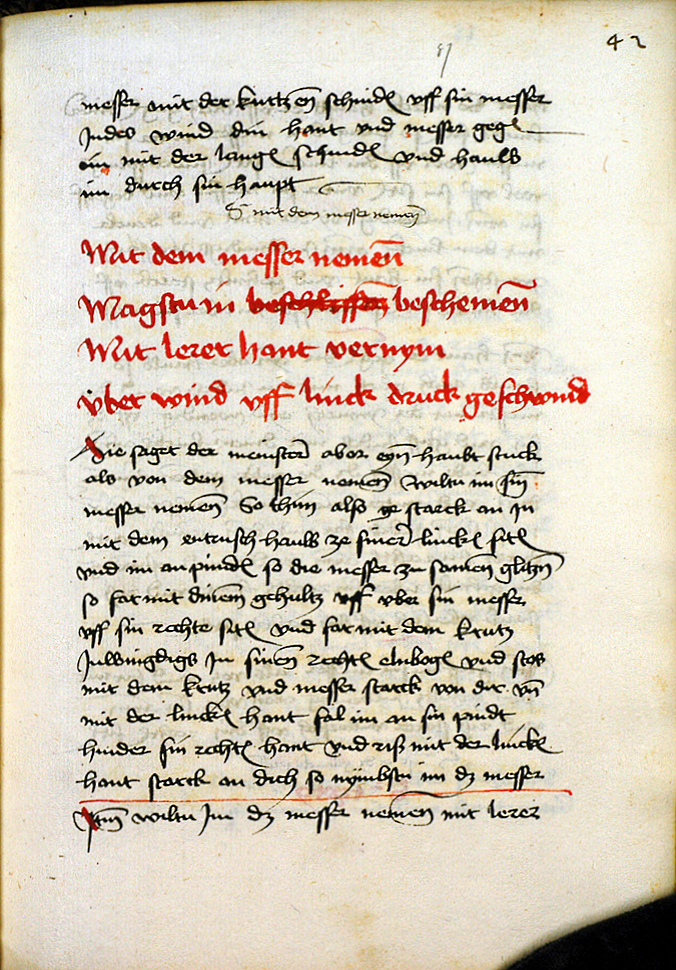 42
messer mit der kurtzen schnidͤ vff sin messer
Indes wind din hant vnd messer gegͤ
im mit der langͤ schnidͤ vnd hauw
im durch sin haupt
mit dem messer nemen̄
Mit dem messer nemen̄
Magstu in beschlissen beschemen̄
Mit lerer hant vernym
vber wind vff linck druck geschwind
Hie saget der meinster abor eyn haubt stuck
als von dem messer nemen̄ wiltu im sin̄
messer nemen̄ So thun also ge starck an in
mit dem entrusch hauw ze siner linckͤ sitͤ
vnd im anpindͤ so die messer zu samen glitzn̄
so far mit dinem gehultz vff vber sin messer
vff sin rechte sitͤ vnd far mit dem krutz
Inwingdigs In sinen rechtͤ elnbogͤ vnd stos
mit dem krutz vnd messer starck von dir vn̄
mit der linckͤ hant fal im an sin pindt
hinder sin rechtͤ hant vnd riß mit der linckͤ
hant starck an dich so nymbstu im dz messer
Itm̄ wiltu Im dz messer nemen̄ mit lerer